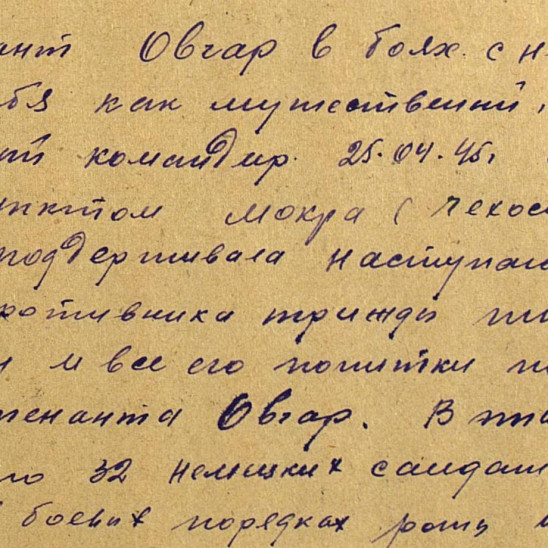 ант Овчар в боях с н
бя как мужественный,
ый командир. 25.04.45г
нктом Мокра (Чехос
поддерживала наступаю
ротивника трижды пы
и и все его попытки п
тенанта Овчар. В
го 32 немецких солдат
боевых порядках роты